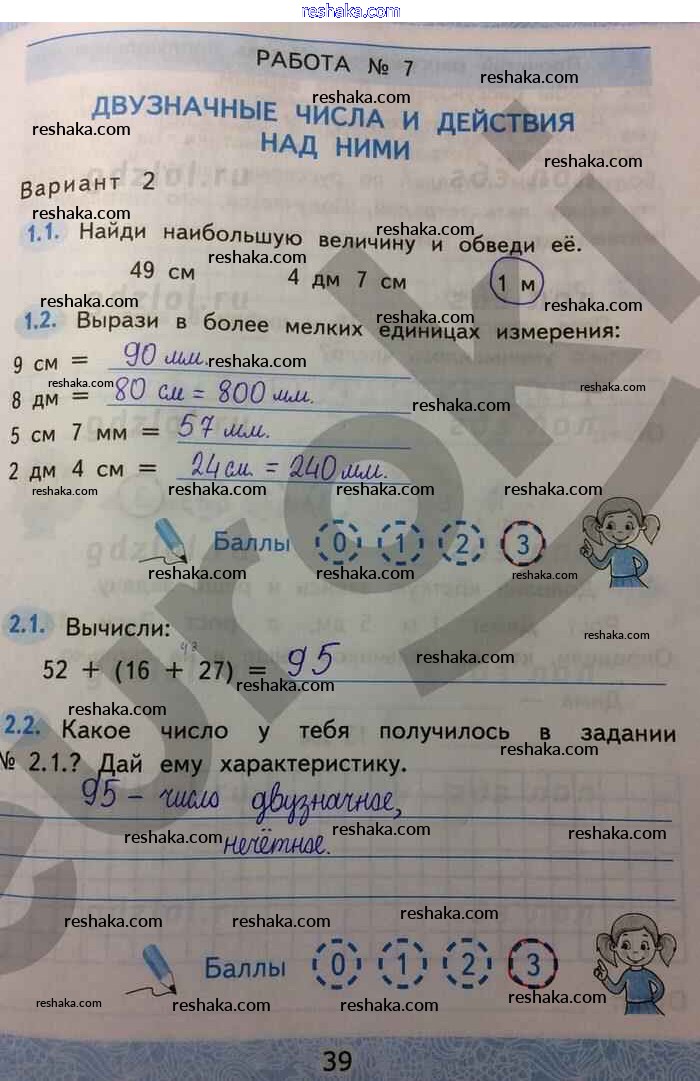 reshaka.com
РАБОТА № 7
ДВУЗНАЧНЫЕ ЧИСЛА И ДЕЙСТВИЯ
НАД НИМИ
Вариант 2
1.1. Найди наибольшую величину и обведи её.
49 см 4 дм 7 см 1 м
1.2. Вырази в более мелких единицах измерения:
9 см = 90 мм.
8 дм = 80 см = 800 мм.
5 см 7 мм = 57 мм.
2 дм 4 см = 24 см = 240 мм.
Баллы 0 1 2 3
2.1. Вычисли:
43
52 + (16 + 27) = 95
2.2. Какое число у тебя получилось в задании
№ 2.1.? Дай ему характеристику.
95 - число двузначное,
нечётное.
Баллы 0 1 2 3
39
reshaka.com